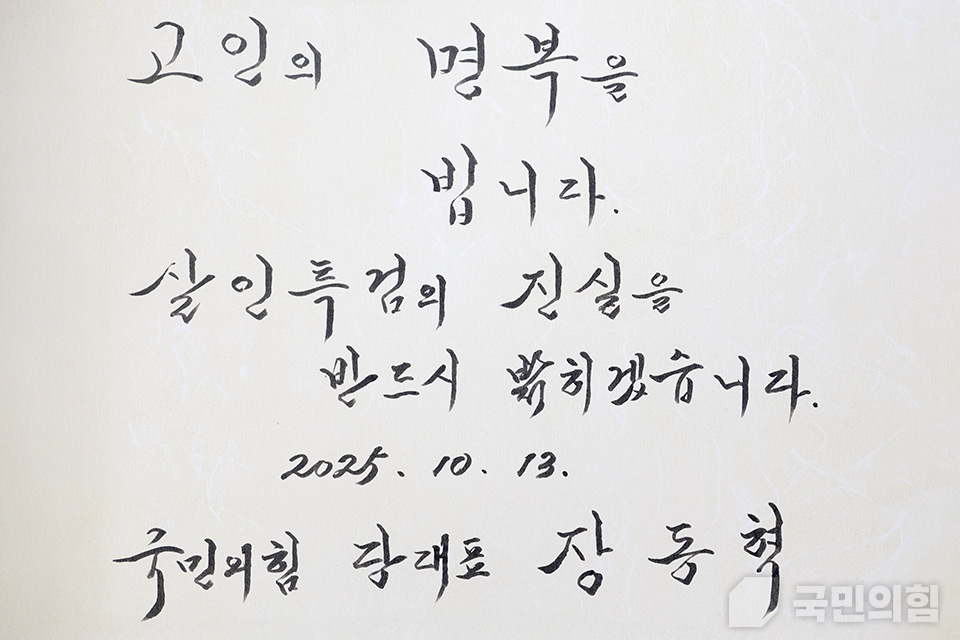 고인의 명복을
빕니다.
살인특검의 진실을
반드시 밝히겠습니다.
2025. 10. 13.
국민의힘 당대표 장동혁
국민의힘